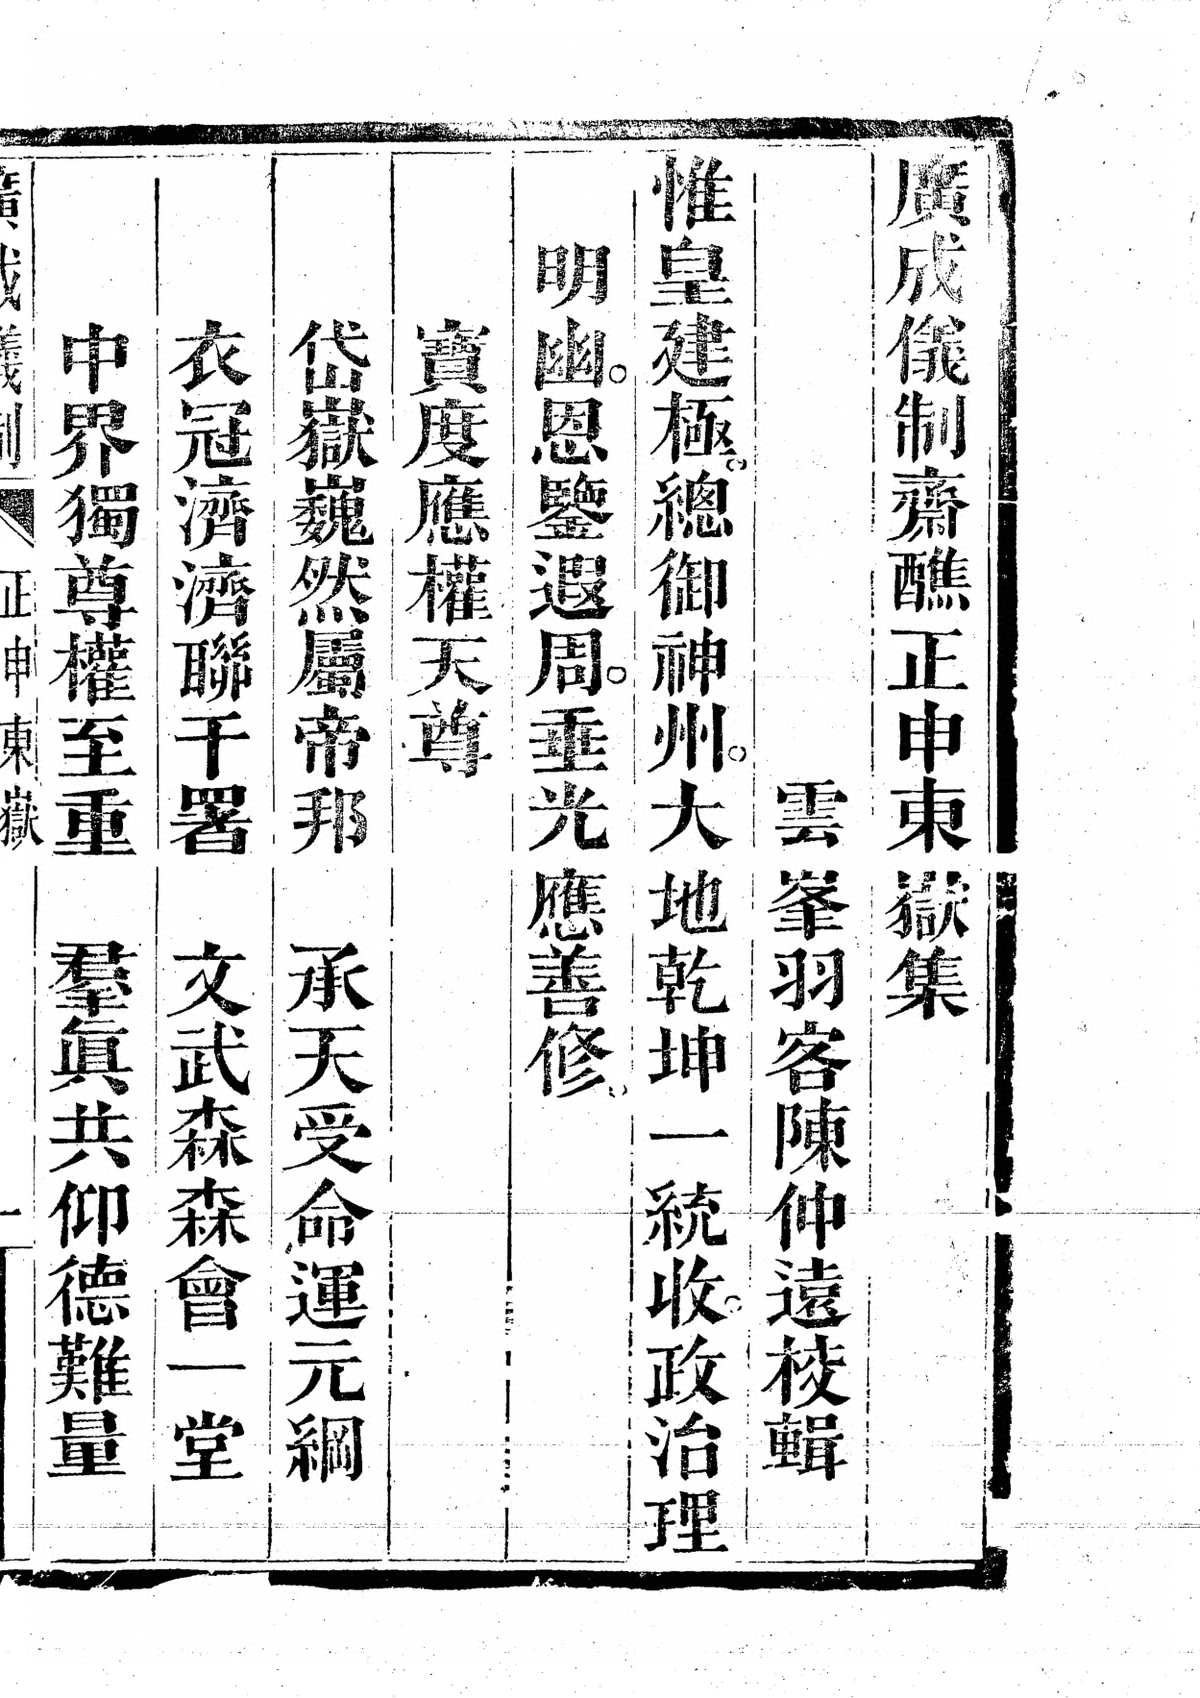 廣成儀制齋醮正申東嶽集
雲峯羽客陳仲遠校輯
惟皇建極。總御神州。大地乾坤一統收。政治理
明幽。恩鑒遐周。垂光應善修。
寶度應權天尊
岱嶽巍然屬帝邦　承天受命運元綱
衣冠濟濟聯千署　文武森森會一堂
中界獨尊權至重　羣眞共仰德難量
廣成儀制　正申東嶽　一